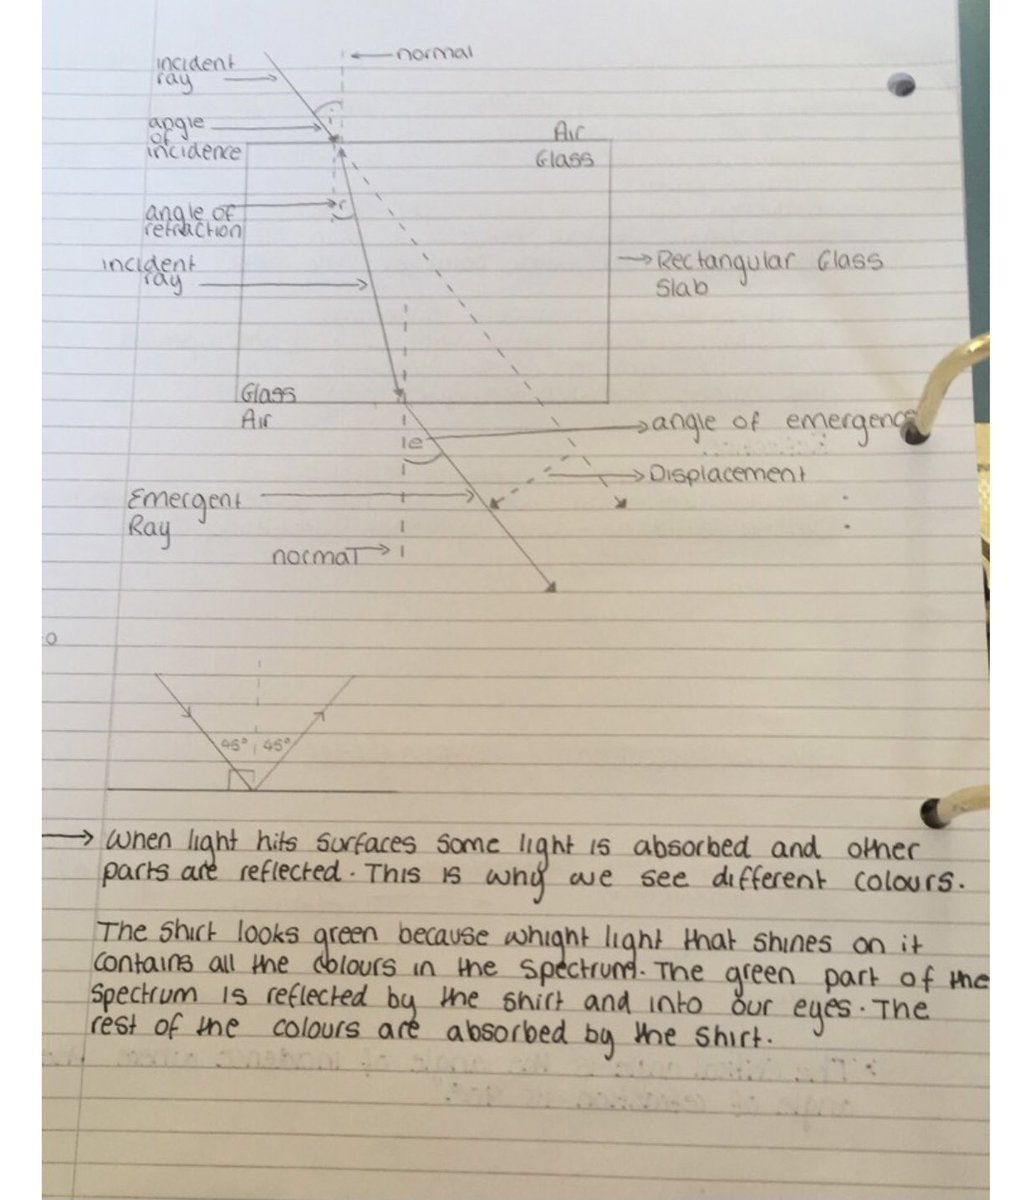 normal
incident
ray
angle
of
incidence
i
Air
Glass
angle of
refraction
r
incident
ray
Rectangular Glass
Slab
Glass
Air
angle of emergence
e
Displacement
Emergent
Ray
normal
45° 45°
When light hits surfaces some light is absorbed and other
parts are reflected. This is why we see different colours.
The shirt looks green because whight light that shines on it
contains all the colours in the spectrum. The green part of the
spectrum is reflected by the shirt and into our eyes. The
rest of the colours are absorbed by the shirt.